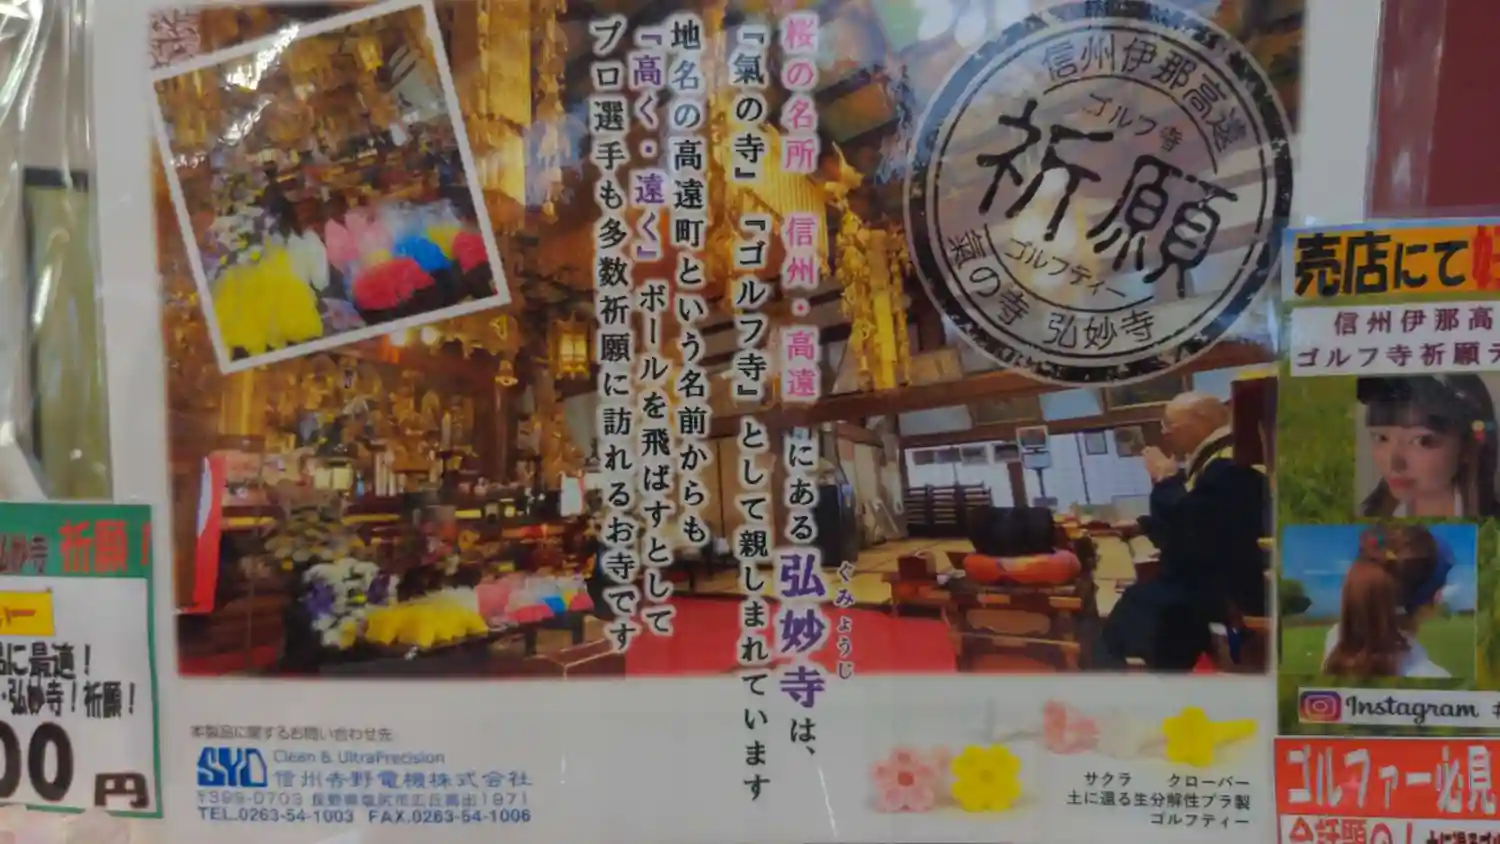 桜の名所 信州・高遠町にある弘妙寺は、
ぐみょうじ
『氣の寺』『ゴルフ寺』として親しまれています
地名の高遠町という名前からも
『高く・遠く』ボールを飛ばすとして
プロ選手も多数祈願に訪れるお寺です
信州伊那高遠
ゴルフ寺
祈願
ゴルフティー
氣の寺 弘妙寺
本製品に関するお問い合わせ先
SYD Clean & UltraPrecision
信州吉野電機株式会社
〒399-0703 長野県塩尻市広丘高出1971
TEL.0263-54-1003 FAX.0263-54-1006
サクラ クローバー
土に還る生分解性プラ製
ゴルフティー
弘妙寺 祈願!
に最適!
・弘妙寺!祈願!
00円
売店にて
信州伊那高
ゴルフ寺祈願
Instagram #
ゴルファー必見